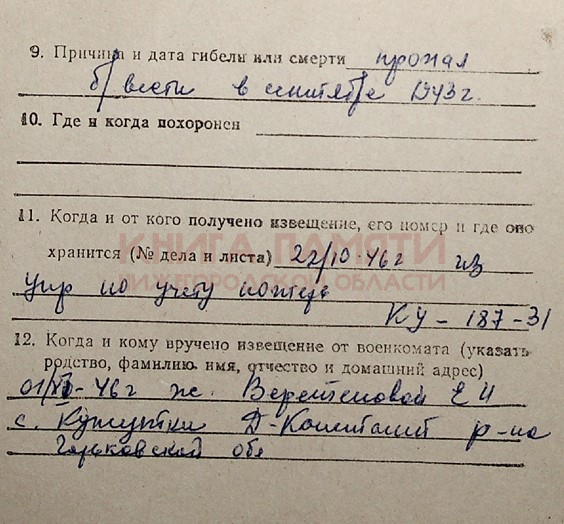 9. Причина и дата гибели или смерти пропал
б/вести в сентябре 1943 г.
10. Где и когда похоронен
11. Когда и от кого получено извещение, его номер и где оно
хранится (№ дела и листа) 22/10-46 г из
КНИГА ПАМЯТИ
НИЖЕГОРОДСКОЙ ОБЛАСТИ
упр по учету
КУ-187-31
12. Когда и кому вручено извещение от военкомата (указать
родство, фамилию, имя, отчество и домашний адрес)
-46 г ж. Веретеновой Е И
с. Кужутки Д-Константи р-на
Горьковской обл